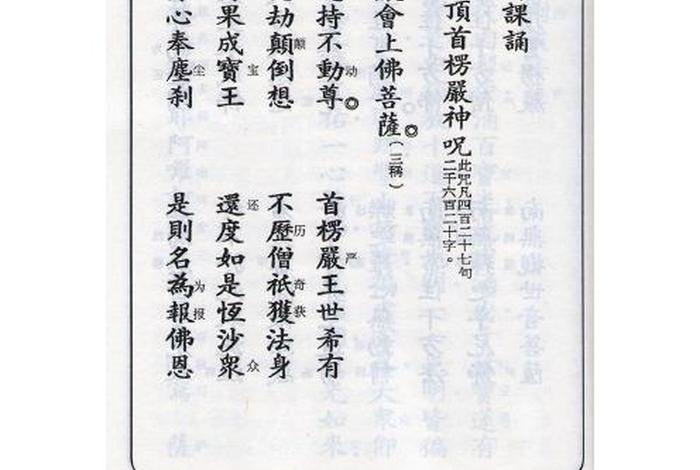 課誦
頂首楞嚴神呪
此咒凡四百二十七句
二千六百二十字。
會上佛菩薩(三稱)
持不動尊 首楞嚴王世希有
动 严
劫顛倒想 不歷僧祇獲法身
颠 历 奇 获
果成寶王 還度如是恆沙眾
宝 还 众
心奉塵剎 是則名為報佛恩
尘 为 报